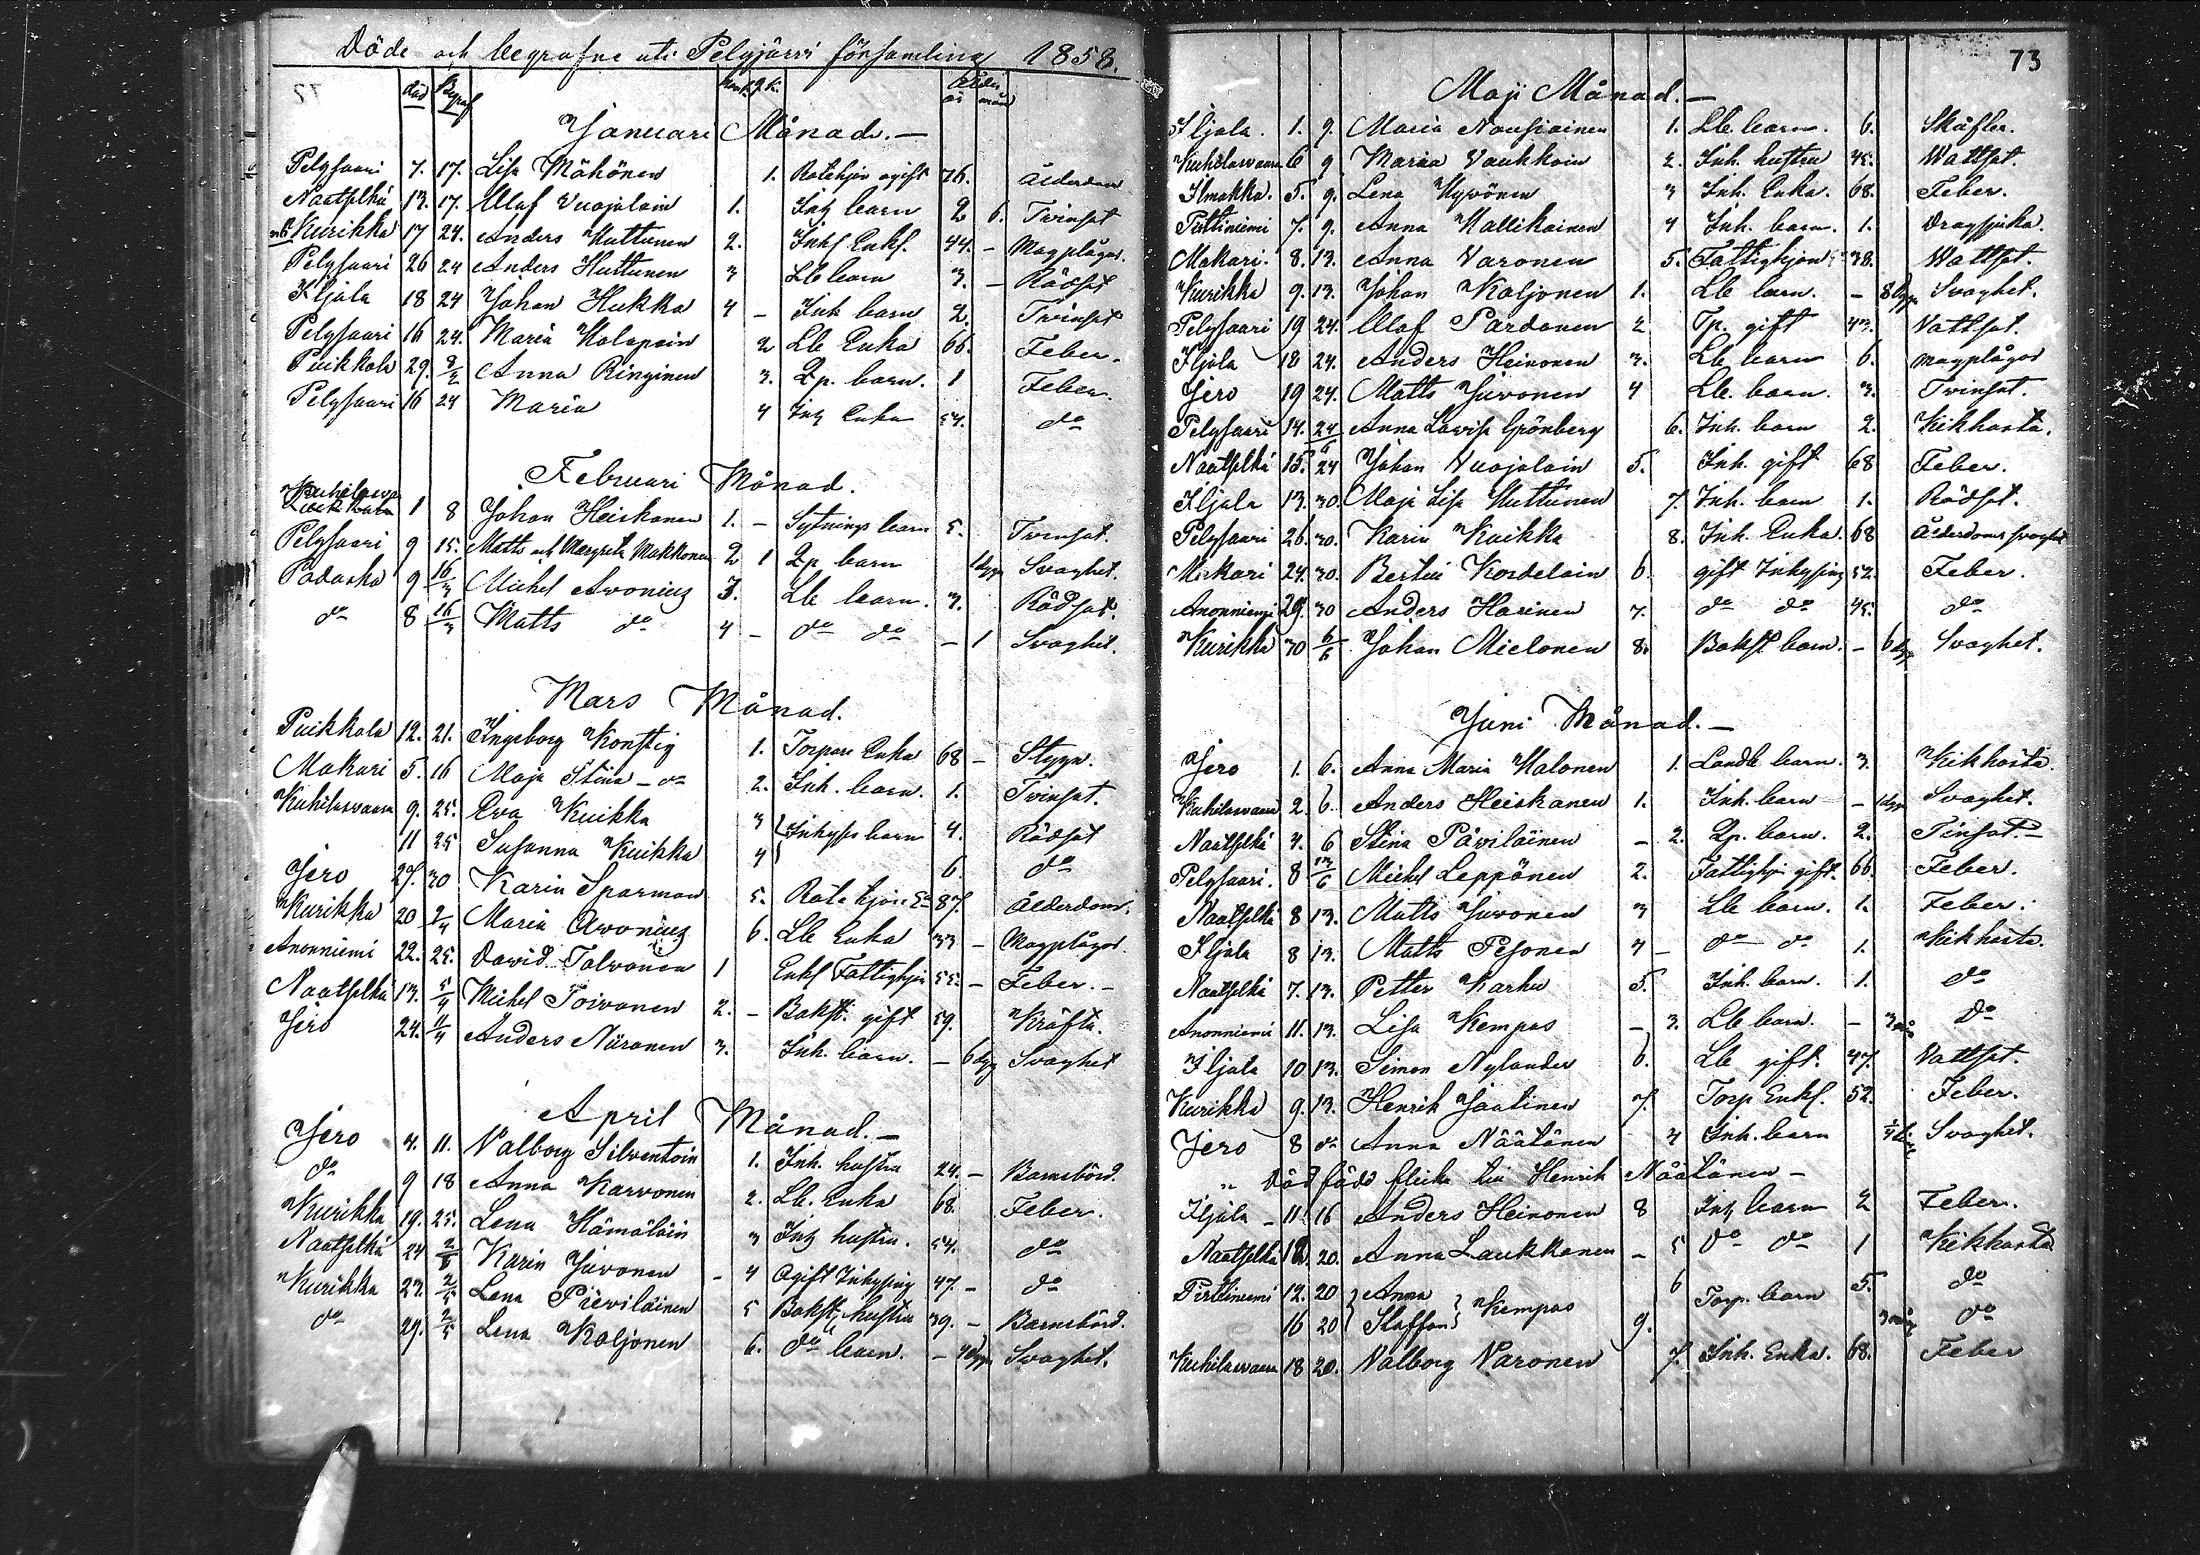 Döde och begrafne uti Pelgjärvi församling 1858.
död Begraf mk. qk. Ålder år månd
Januari Månad.—
Pelgjaari 7. 17. Lisa Möhönen 1. Rotehjon ogift 76. Ålderdom
Naatselkä 13. 17. Olaf Vuojolain 1. Inh barn 2 6. Tvinsot
Kurikka 17 24. Anders Huttunen 2. Inhs Enkl. 44. — Magplågor.
Pelgjaari 26 24 Anders Huttunen 3 Lb barn 3. — Rödsot
Iljala 18 24 Johan Hukka 4 — Inh barn 2. Tvinsot
Pelgjaari 16 24. Maria Holopain 2 Lb Enka 66. Feber.
Puikkola 29. 2/2 Anna Ringinen 3. Lp. barn. 1 Feber.
Pelgjaari 16 24 Maria 4 Inh Enka 54. do
Februari Månad.
Kuhilasva 1 8 Johan Heiskanen 1. — Sytnings barn 5. Tvinsot.
Pelgjaari 9 15. Matts och Margreta Makkonen 2 1 Lp barn 1 dygn Svaghet.
Padaska 9 16/3 Michel Avonius 3. Lb barn. 3. Rödsot.
do 8 16/3 Matts do 4 — do do — 1 Svaghet.
Mars Månad.
Puikkola 12. 21. Ingeborg Konstig 1. Torpare Enka 68 — Stygn.
Makari 5. 16 Maja Stina — do 2. Inh. barn. 1. Tvinsot.
Kuhilasvaara 9. 25. Eva Kuikka 3 Inhyss barn 4. Rödsot
11 25 Susanna Kuikka 4 6. do
Jero 27. 30 Karin Sparman 5. Rotehjon Ea 87. Ålderdom.
Kurikka 20 2/4 Maria Avonius 6. Lb Enka 33 — Magplågor.
Anonniemi 22. 25. David Tolvonen 1 Enkl Fattighjon 55. — Feber. —
Naatselkä 13. 5/4 Michel Toivonen 2. — Bakst. gift 59. Kräfta.
Jero 24. 11/4 Anders Näronen 3. Inh. barn. — 6 dyg Svaghet
April Månad.—
Jero 4. 11. Valborg Silventoin 1. Inh. hustru 24. — Barnsbörd.
do 9 18 Anna Karvonen 2. Lb. Enka 68. Feber.
Kurikka 19. 25. Lena Hämäläin 3 Inh hustru. 54. do
Naatselkä 24 2/5 Karin Juvonen — 4 Ogift Inhysing 47. — do
Kurikka 23. 2/5 Lena Pieviläinen 5 Bakst. hustru 39. — Barnsbörd.
do 29. 2/5 Lena Koljonen 6. do barn. — 4 dygn Svaghet.
73
Maji Månad.—
Iljala. 1. 9. Maria Nousiainen 1. Lb. barn. 6. Skåfler.
Kuhilasvaara 6 9 Maria Vaukkoin 2. Inh. hustru 45. Wattsot.
Ilmakka. 5. 9. Lena Hyvönen 3 Inh. Enka. 68. Feber.
Pirttiniemi 7. 9. Anna Hallikainen 4 Inh. barn. 1. Dragsjuka.
Makari. 8. 13. Anna Varonen 5. Fattighjon 38. Wattsot.
Kurikka 9. 13. Johan Koljonen 1. Lb barn. — 8 dygn Svaghet.
Pelgjaari 19 24. Olof Pardanen 2 Tp. gift 43. Vattsot.
Iljala 18 24. Anders Heinonen 3. Lb barn 6. Magplågor
Jero 19 24. Matts Juvonen 4 Lb. barn. 3. Tvinsot.
Pelgjaari 14. 24 Anna Lovisa Grönberg 6. Inh. barn 2. Kikhosta.
Naatselkä 15. 24 Johan Vuojolain 5. Inh. gift 68 Feber.
Iljala 13. 30. Maja Lisa Huttunen 7. Inh. barn 1. Rödsot.
Pelgjaari 26. 30. Karin Kuikka 8. Inh. Enka. 68 Ålderdoms svaghet
Makari 24. 30. Bertil Kordelain 6. gift Inhysing 52. Feber.
Anonniemi 29. 30 Anders Harinen 7. do do 45. do
Kurikka 30 6/6 Johan Mielonen 8. Bakst barn. — 6 dygn Svaghet.
Juni Månad.—
Jero 1. 6. Anna Maria Halonen 1. Landb barn. 3. Kikhosta.
Kuhilasvaara 2. 6. Anders Heiskanen 1. Inh. barn — 1 dygn Svaghet.
Naatselkä 4. 6 Stina Päviläinen — 2. Lp. barn. 2. Tinsot.—
Pelgjaari. 8 13/6 Michel Leppönen 2. Fattighjon gift. 66. Feber.
Naatselkä 8 13. Matts Juvonen 3 Lb barn. 1. Feber.
Iljala 8 13. Matts Pesonen 4 — do do 1. Kikhosta.
Naatselkä 7. 13. Petter Karhu 5. Inh. barn. 1. do
Anonniemi 11. 13. Lisa Kempas — 3. Lb barn. — 3 mån do
Iljala 10 13. Simon Nylander 6. Lb gift. 47. Vattsot.
Kurikka 9. 13. Henrik Jaatinen 7. Torp Enkl. 52. Feber.
Jero 8 do Anna Näätänen 4 Inh. barn Svaghet.
„ Död född flicka till Henrik Näätänen —
Iljala — 11. 16 Anders Heinonen 8 Inh barn 2 Feber.
Naatselkä 12. 20. Anna Laukkanen — 5 do do 1 Kikhosta
Pirttiniemi 12. 20 Anna } Kempas 6 Torp. barn 5. do
16 20 Staffan 9. 3 mån do
Kuhilasvaara 18 20. Valborg Varonen 7. Inh. Enka. 68. Feber